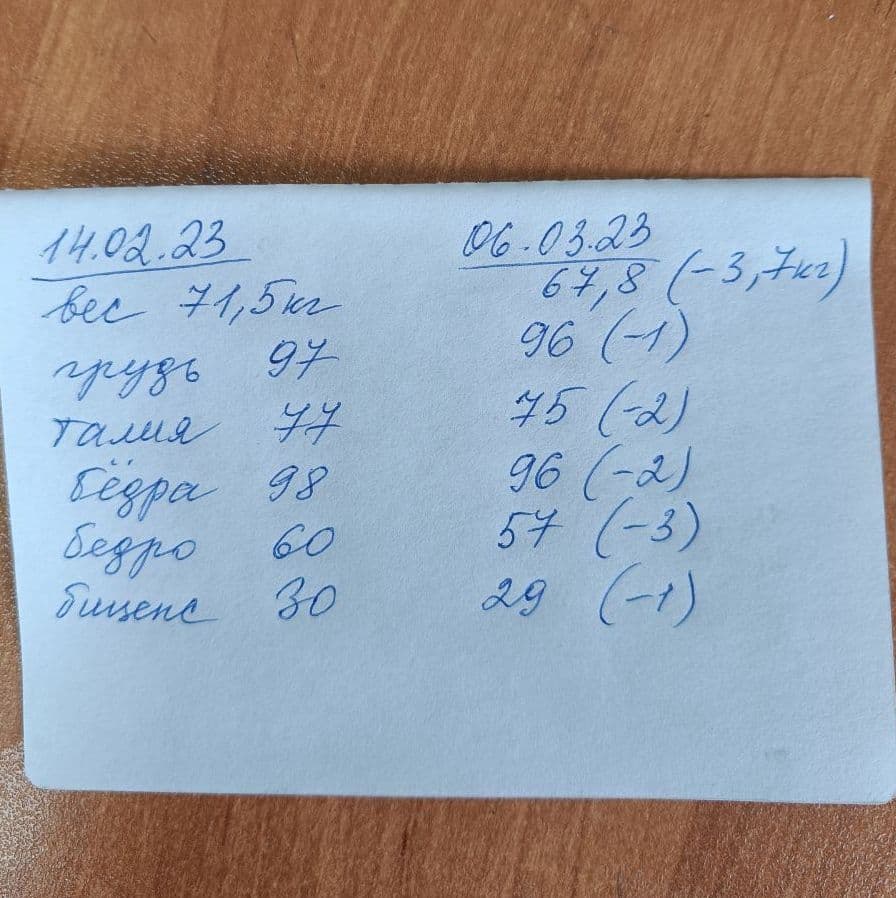 14.02.23 06.03.23
вес 71,5кг 67,8 (-3,7кг)
грудь 97 96 (-1)
талия 77 75 (-2)
бёдра 98 96 (-2)
бедро 60 57 (-3)
бицепс 30 29 (-1)